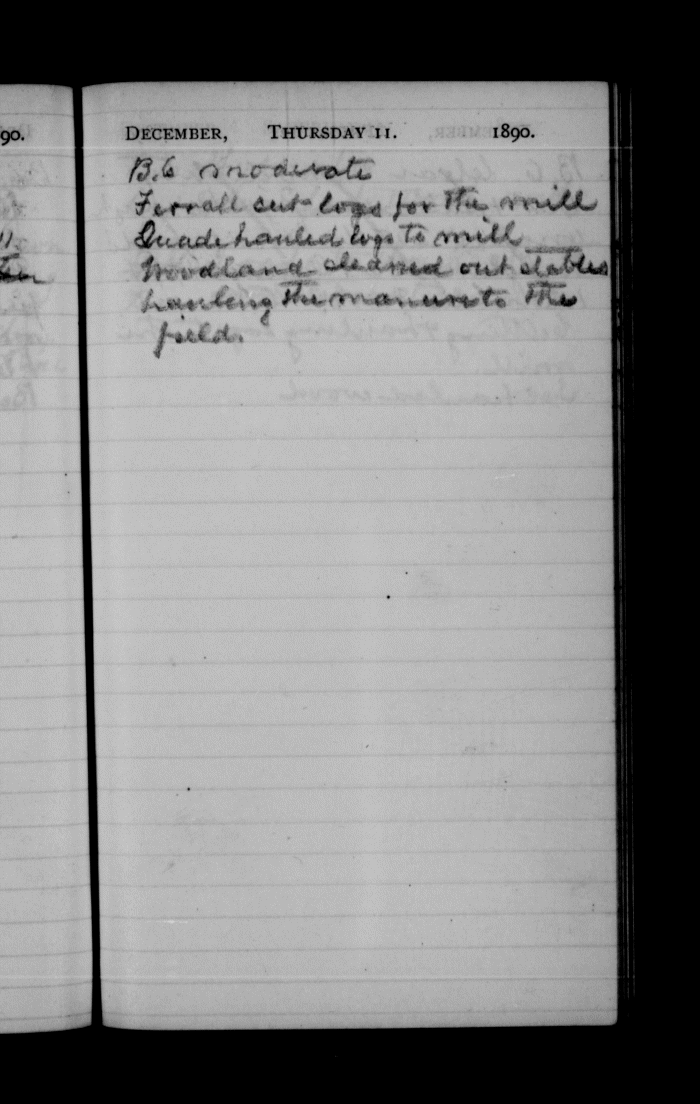 90.
DECEMBER, THURSDAY 11. 1890.
B.C moderate
Ferrall cut logs for the mill
Quade hauled logs to mill
Woodland cleaned out stables
hauling the manure to the
field.